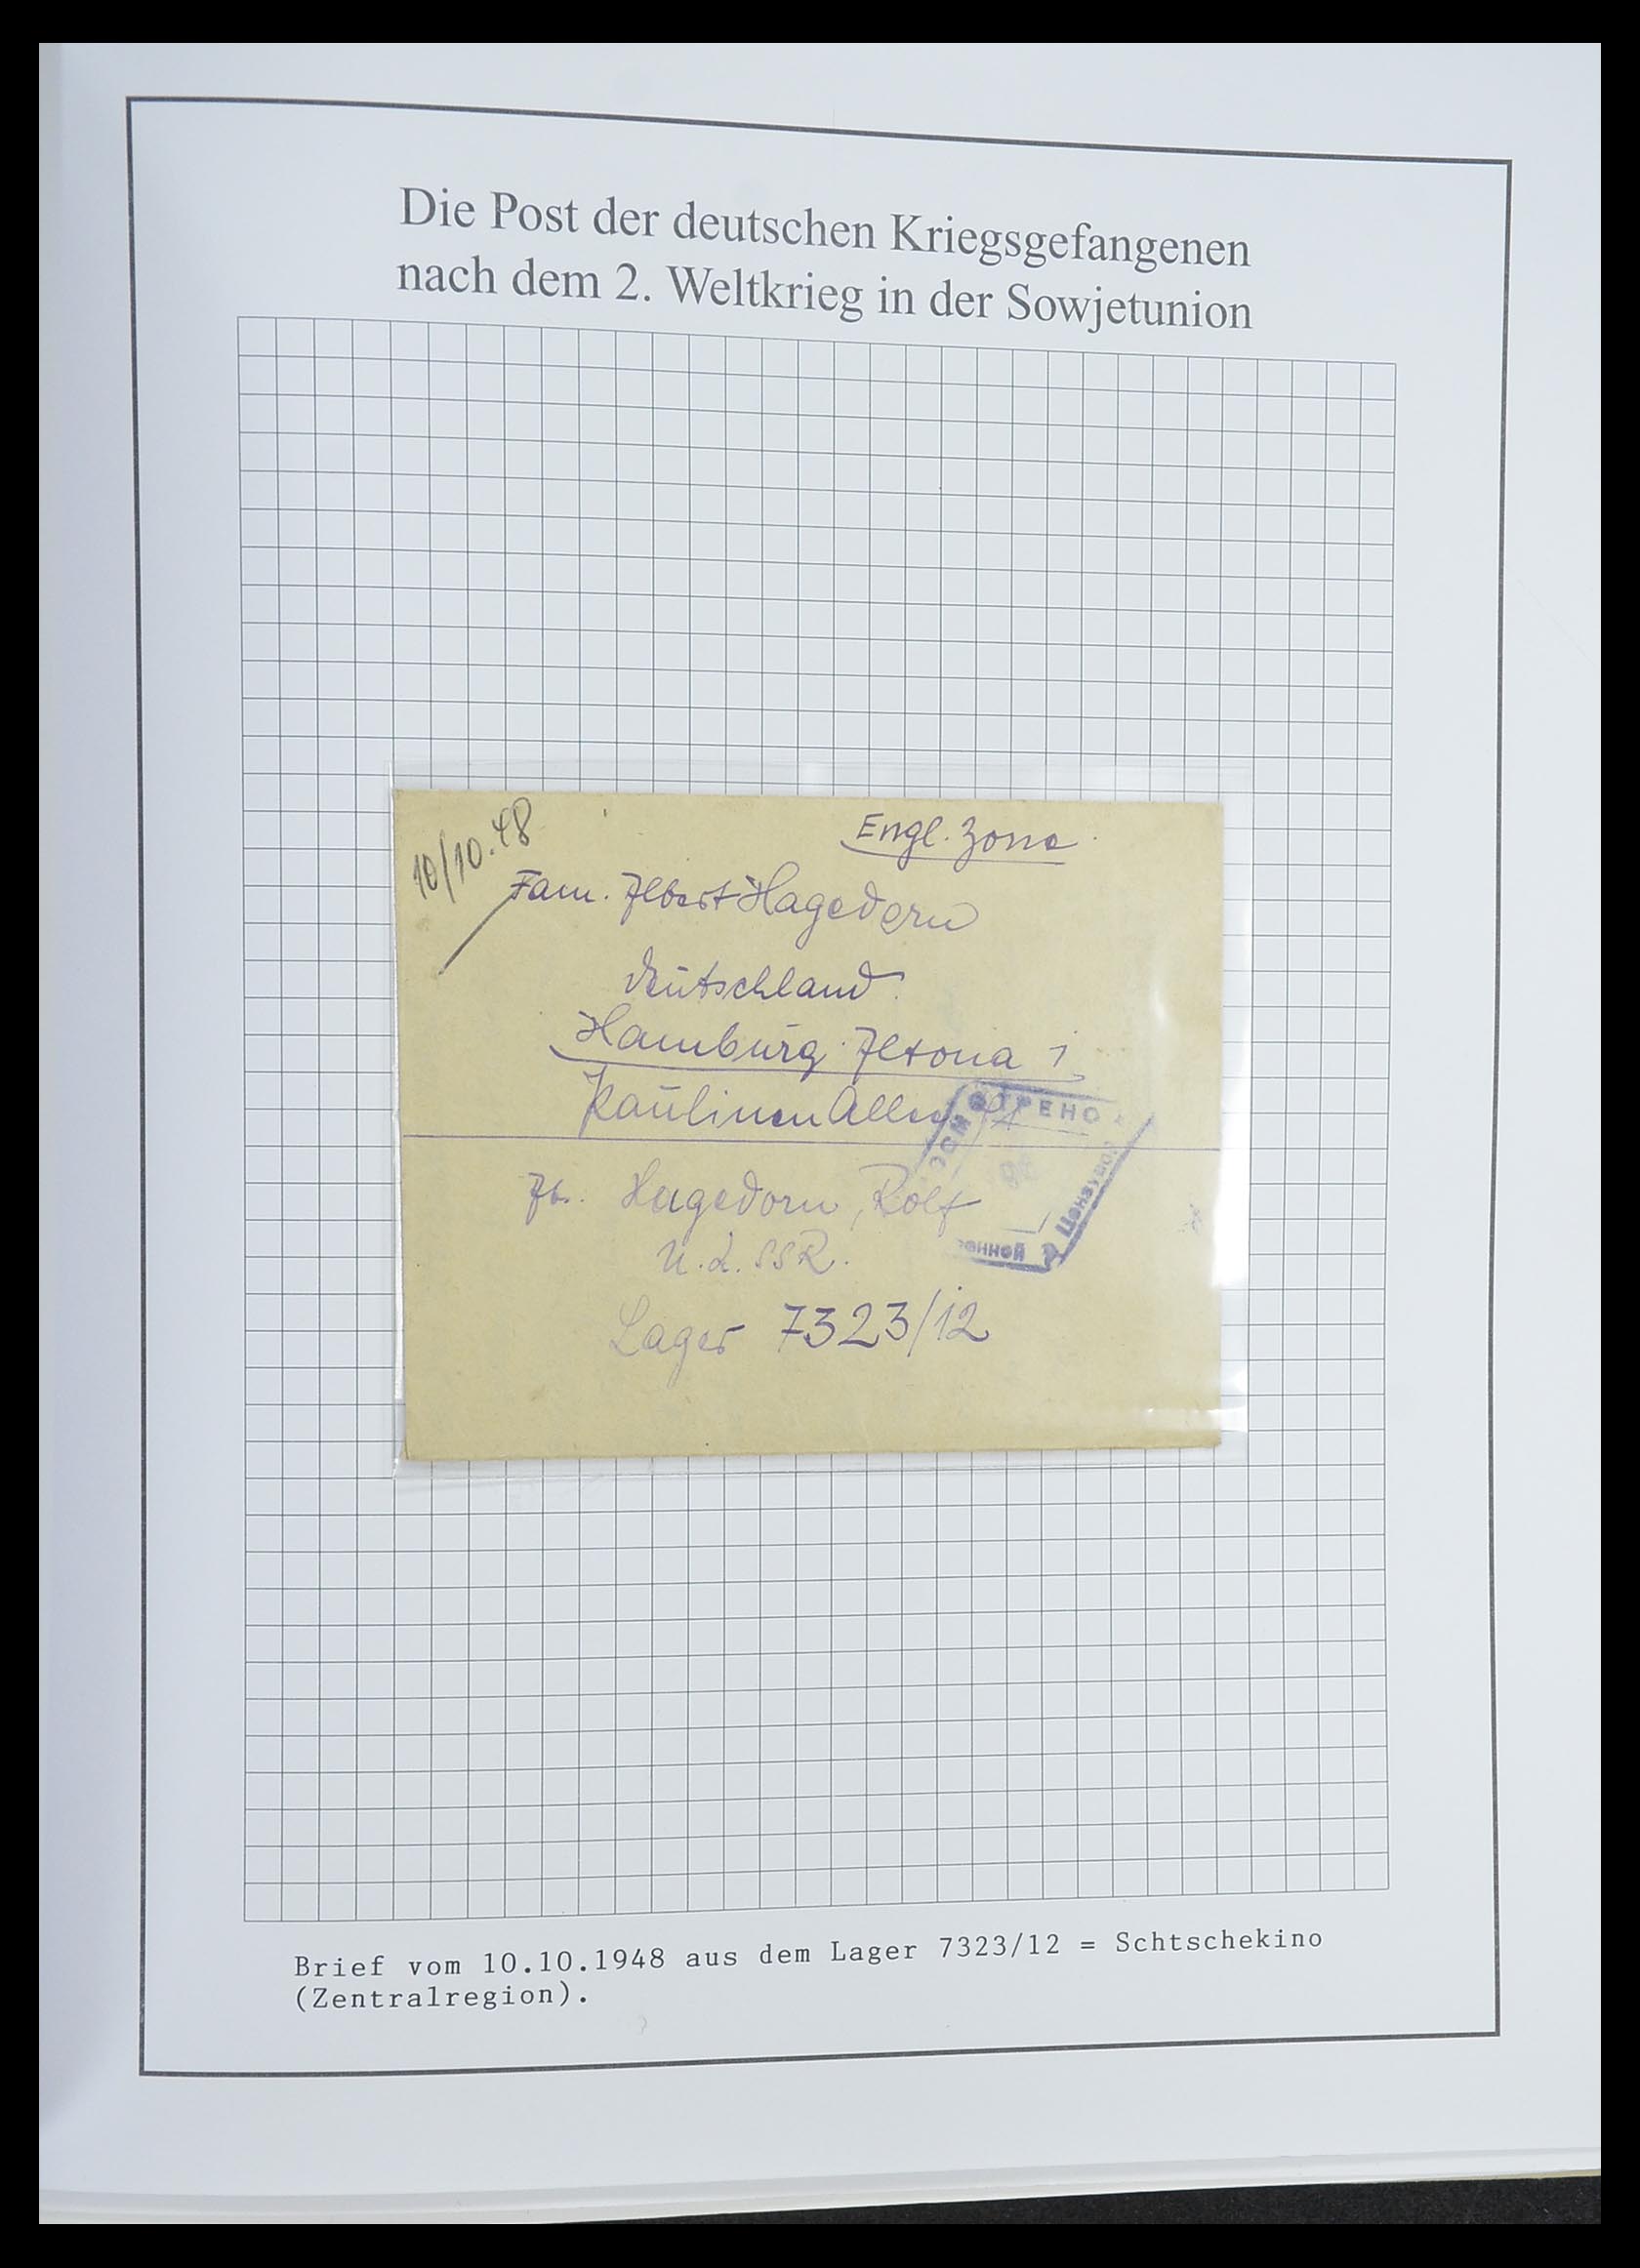 Die Post der deutschen Kriegsgefangenen
nach dem 2. Weltkrieg in der Sowjetunion
10/10.48
Engl. Zone
Fam. Albert Hagedorn
Deutschland
Hamburg Altona 1
Paulinen Allee
Ab. Hagedorn, Rolf
U.d.SSR.
Lager 7323/12
Brief vom 10.10.1948 aus dem Lager 7323/12 = Schtschekino
(Zentralregion).